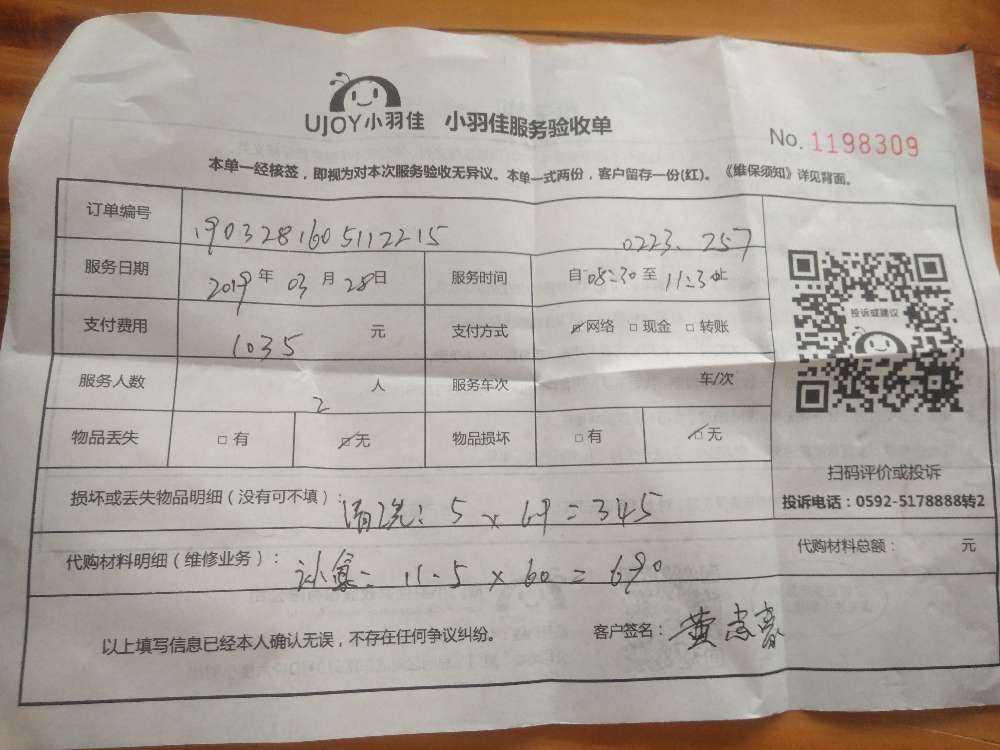 UJOY小羽佳 小羽佳服务验收单
No. 1198309
本单一经核签，即视为对本次服务验收无异议。本单一式两份，客户留存一份(红)。《维保须知》详见背面。
订单编号 1903281605112215 0223.257
服务日期 2019年03月28日 服务时间 自08:30至11:30止
支付费用 1035 元 支付方式 ☑网络 □现金 □转账
服务人数 2 人 服务车次 车/次
物品丢失 □有 ☑无 物品损坏 □有 ☑无
投诉或建议
扫码评价或投诉
投诉电话：0592-5178888转2
损坏或丢失物品明细（没有可不填）：清洗：5×69=345
代购材料明细（维修业务）： 11.5×60=690
代购材料总额： 元
以上填写信息已经本人确认无误，不存在任何争议纠纷。 客户签名：黄